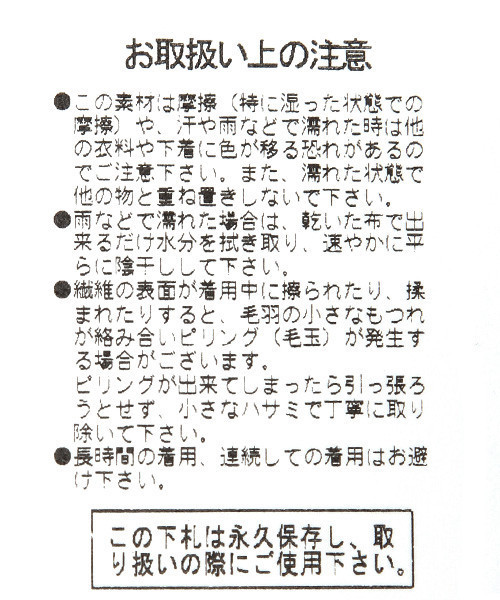 お取扱い上の注意
●この素材は摩擦（特に湿った状態での
摩擦）や、汗や雨などで濡れた時は他
の衣料や下着に色が移る恐れがあるの
でご注意下さい。また、濡れた状態で
他の物と重ね置きしないで下さい。
●雨などで濡れた場合は、乾いた布で出
来るだけ水分を拭き取り、速やかに平
らに陰干しして下さい。
●繊維の表面が着用中に擦られたり、揉
まれたりすると、毛羽の小さなもつれ
が絡み合いピリング（毛玉）が発生す
る場合がございます。
ピリングが出来てしまったら引っ張ろ
うとせず、小さなハサミで丁寧に取り
除いて下さい。
●長時間の着用、連続しての着用はお避
け下さい。
この下札は永久保存し、取
り扱いの際にご使用下さい。